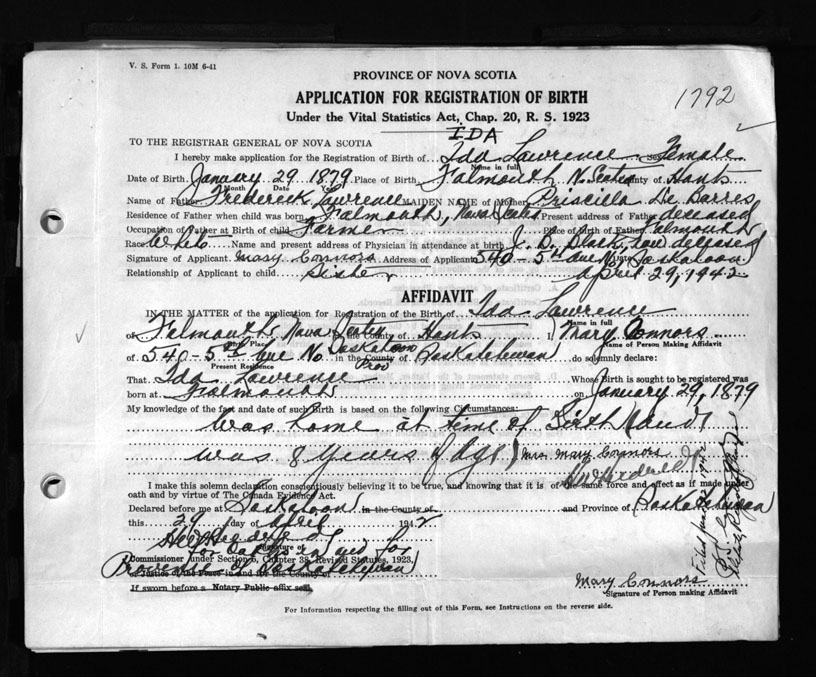 V. S. Form 1. 10M 6-41
PROVINCE OF NOVA SCOTIA
APPLICATION FOR REGISTRATION OF BIRTH
1792
Under the Vital Statistics Act, Chap. 20, R. S. 1923
IDA
TO THE REGISTRAR GENERAL OF NOVA SCOTIA
I hereby make application for the Registration of Birth of Ida Lawrence Sex Female
Name in full
Date of Birth January 29 1879 Place of Birth Falmouth N. Scotia County of Hants
Month Date Year
Name of Father Frederick Lawrence MAIDEN NAME of Mother Priscilla De Barres
Residence of Father when child was born Falmouth, Nova Scotia Present address of Father deceased
Occupation of Father at Birth of child Farmer Place of Birth of Father Falmouth
Race White Name and present address of Physician in attendance at birth J. B. Black, now deceased
Signature of Applicant Mary Connors Address of Applicant 540-5th Ave No. Saskatoon
Relationship of Applicant to child Sister April 29, 1942
AFFIDAVIT
IN THE MATTER of the application for Registration of the Birth of Ida Lawrence
Name in full
of Falmouth, Nova Scotia in the County of Hants I, Mary Connors
Birth Place Name of Person Making Affidavit
of 540-5th Ave No Saskatoon in the County of Saskatchewan do solemnly declare:
Present Residence Prov
That Ida Lawrence Whose Birth is sought to be registered was
born at Falmouth on January 29, 1879
My knowledge of the fact and date of such Birth is based on the following Circumstances:
Was home at time of birth (and
was 8 years of age) Mrs. Mary Connors
I make this solemn declaration conscientiously believing it to be true, and knowing that it is of the same force and effect as if made under
oath and by virtue of The Canada Evidence Act.
Declared before me at Saskatoon in the County of and Province of Saskatchewan
this 29 day of April 1942
Signature of
Commissioner under Section 6, Chapter 38, Revised Statutes, 1923,
Province of Saskatchewan
or Justice of the Peace in and for the County of
If sworn before a Notary Public affix seal
Mary Connors
Signature of Person making Affidavit
For Information respecting the filling out of this Form, see Instructions on the reverse side.